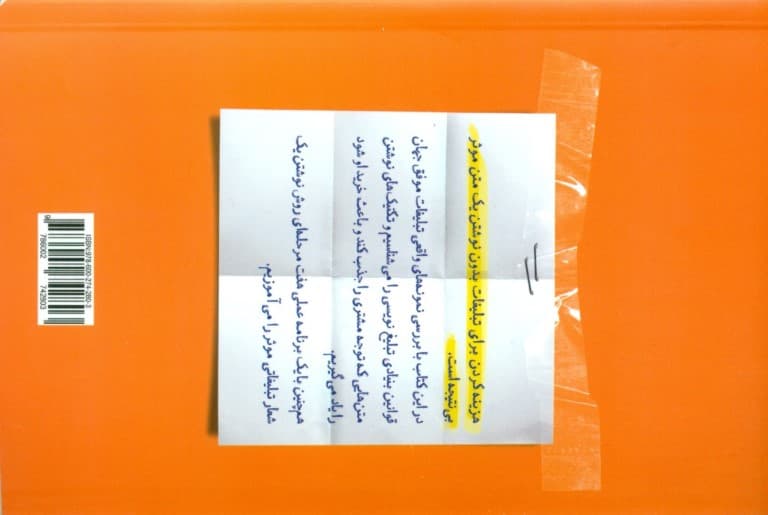 هزینه کردن برای تبلیغات بدون نوشتن یک متن موثر
بی نتیجه است.
در این کتاب با بررسی نمونه‌های واقعی تبلیغات موفق جهان
قوانین بنیادی تبلیغ نویسی را می‌شناسیم و تکنیک‌های نوشتن
متن‌هایی که توجه مشتری را جذب کند و باعث خرید او شود
را یاد می‌گیریم.
هم‌چنین با یک برنامه عملی هفت مرحله‌ای روش نوشتن یک
شعار تبلیغاتی موثر را می‌آموزیم.
ISBN:978-600-274-280-3
9 786002 742803